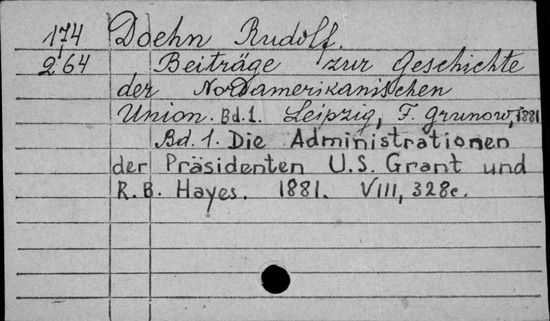 174 Doehn Rudolf.
264 Beiträge zur Geschichte
der Nordamerikanischen
Union. Bd. 1. Leipzig, F. Grunow, 1881
Bd. 1. Die Administrationen
der Präsidenten U.S. Grant und
R. B. Hayes. 1881. VIII, 328c.